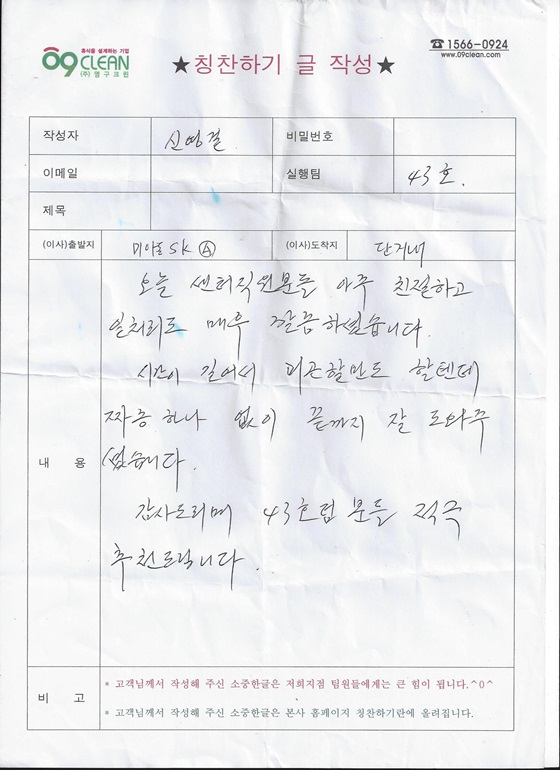 휴식을 설계하는 기업
09CLEAN
(주)영구크린
★칭찬하기 글 작성★
☎1566-0924
www.09clean.com
작성자 신영결 비밀번호
이메일 실행팀 43호.
제목
(이사)출발지 미아동 SK Ⓐ (이사)도착지 단지내
오늘 센터직원분들 아주 친절하고
일처리도 매우 깔끔하셨습니다.
시간이 길어서 피곤할만도 할텐데
짜증하나 없이 끝까지 잘 도와주
셨습니다.
내 용
감사드리며 43호팀 분들 적극
추천드립니다.
비 고
• 고객님께서 작성해 주신 소중한글은 저희지점 팀원들에게는 큰 힘이 됩니다.^0^
• 고객님께서 작성해 주신 소중한글은 본사 홈페이지 칭찬하기란에 올려집니다.